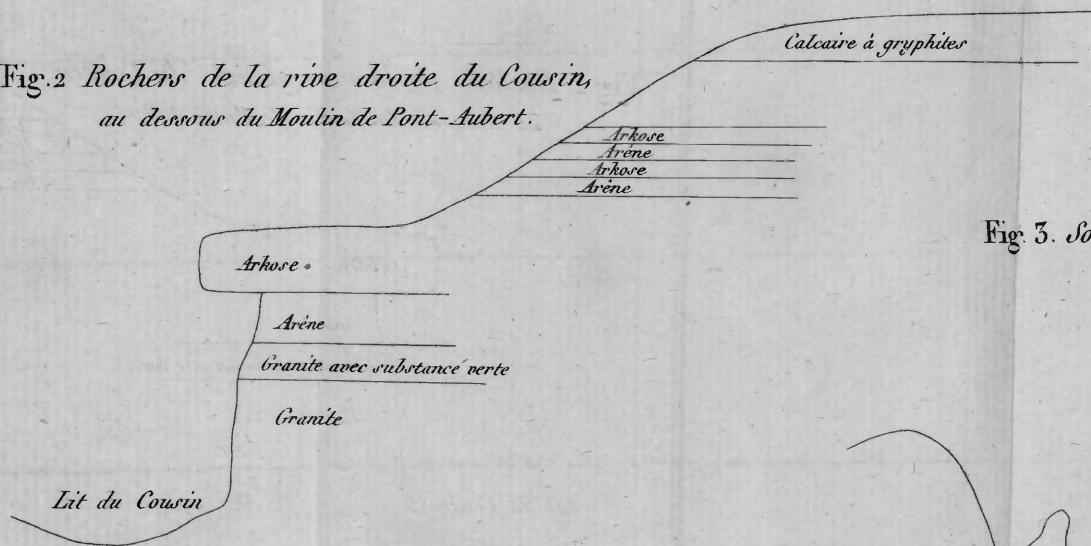 Fig. 2 Rochers de la rive droite du Cousin,
au dessous du Moulin de Pont-Aubert.
Calcaire à gryphites
Arkose
Arêne
Arkose
Arêne
Fig. 3.
Arkose
Arêne
Granite avec substance verte
Granite
Lit du Cousin